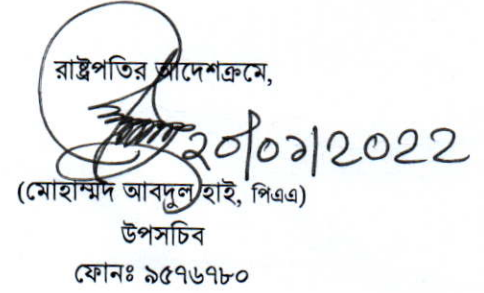 রাষ্ট্রপতির আদেশক্রমে,
২০/০১/2022
(মোহাম্মদ আবদুল হাই, পিএএ)
উপসচিব
ফোনঃ ৯৫৭৬৭৮০